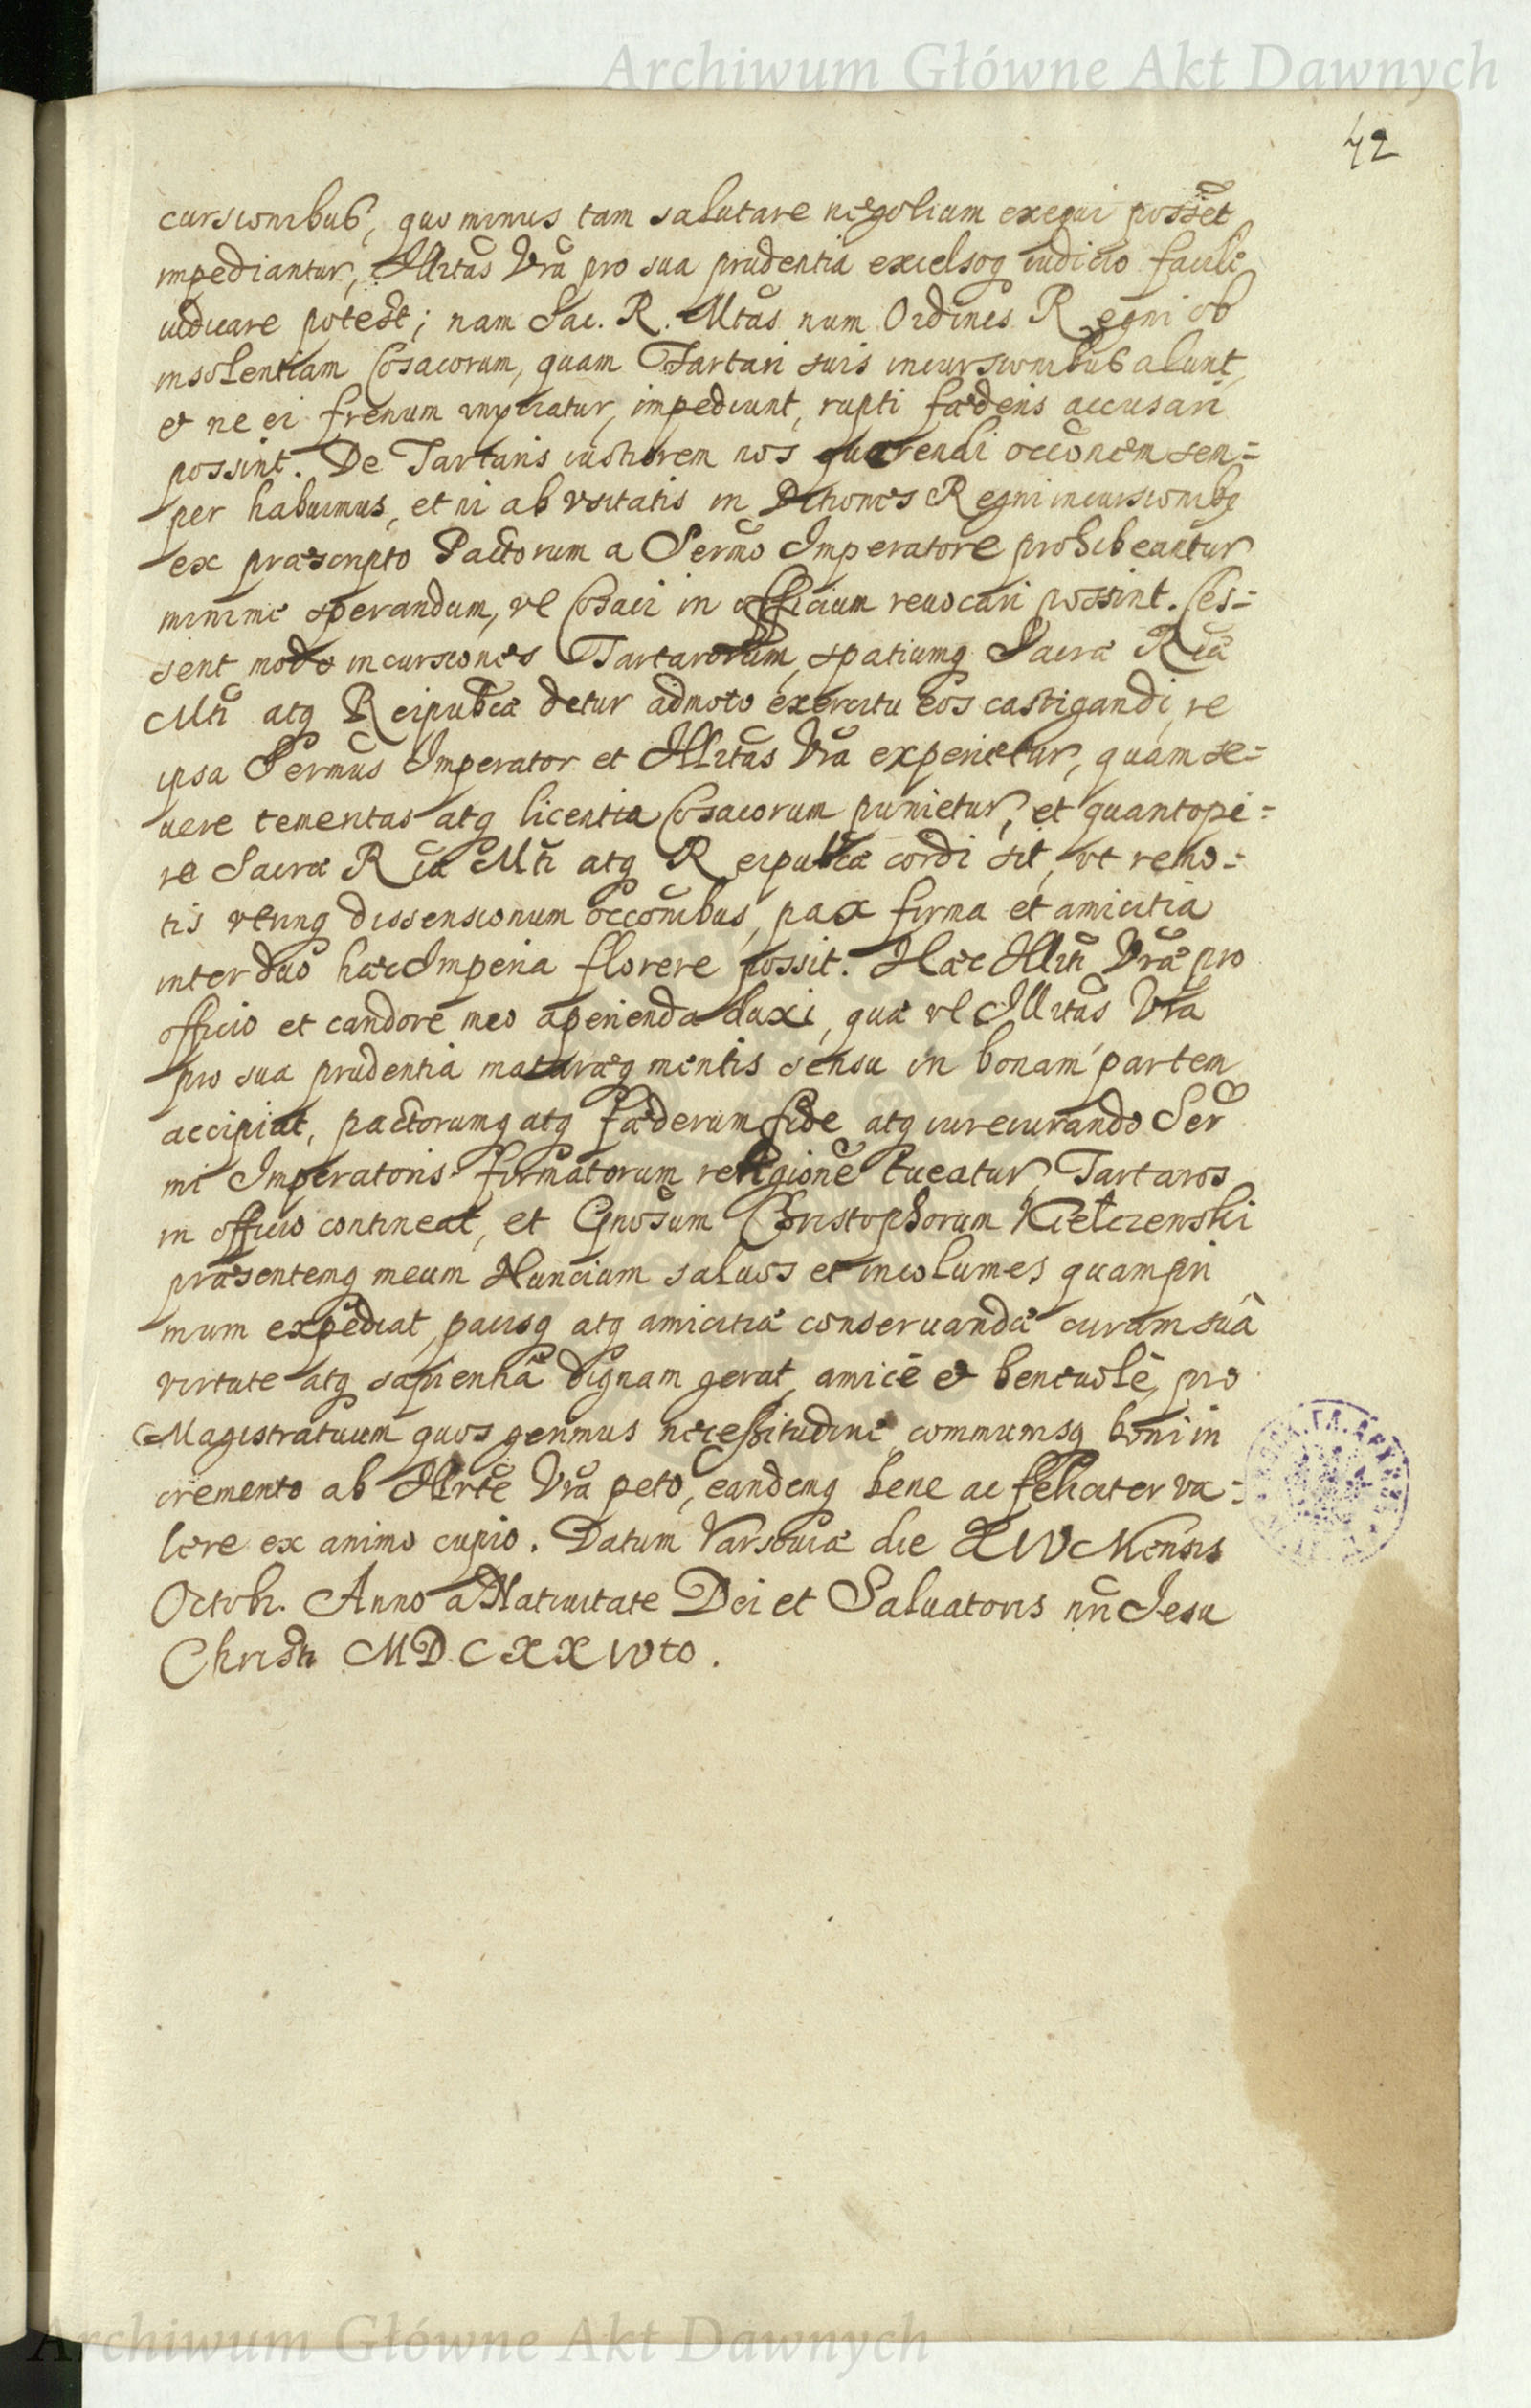 Archiwum Główne Akt Dawnych
42
cursionibus, quo minus tam salutare negotium exequi posset
impediantur, Illrītas Vrā pro sua prudentia excelsoq iudicio facile
iudicare potest; nam Sac. R. Mtās num Ordines Regni ob
insolentiam Cosacorum, quam Tartari suis incursionibus alunt,
et ne ei frenum inijciatur, impediunt, rupti fæderis accusari
possint. De Tartaris iustiorem nos quærendi occōnem sem=
per habuimus, et ni ab vsitatis in Ditiones Regni incursionibq
ex præscripto Pactorum a Sermō Imperatore prohibeantur
minime sperandum, vt Cosaci in officium reuocari possint. Ces=
sent modo incursiones Tartarorum, spatiumq Sacræ Rīæ
Mtī atq Reipubcæ detur admoto exercitu eos castigandi, re
ipsa Sermūs Imperator et Illrītas Vrā experietur, quam se=
uere temeritas atq licentia Cosacorum punietur, et quantope=
re Sacræ Rīæ Mtī atq Reipubcæ cordi sit, vt remo=
tis vtrinq dissensionum occōnibus, pax firma et amicitia
inter duo hæc Imperia florere possit. Hæc Illrī Vræ pro
officio et candore meo aperienda duxi, quæ vt Illrītas Vrā
pro sua prudentia maturæq mentis sensu in bonam partem
accipiat, pactorumq atq fæderum fide atq iureiurando Ser
mi Imperatoris firmatorum religionē tueatur, Tartaros
in officio contineat, et Gnōsum Christophorum Kiełczewski
præsentemq meum Nuncium saluos et incolumes quampri
mum expediat, pacisq atq amicitiæ conseruandæ curam suâ
virtute atq sapientiâ dignam gerat, amicè et beneuolè, pro
Magistratuum quos gerimus necessitudine, communisq boni in
cremento ab Illrtē Vrā peto, eandemq bene ac feliciter va=
lere ex animo cupio. Datum Varsouiæ die XIV Mensis
Octobr. Anno a Natiuitate Dei et Saluatoris nrī Iesu
Christi MDCXXIVto.
Archiwum Główne Akt Dawnych